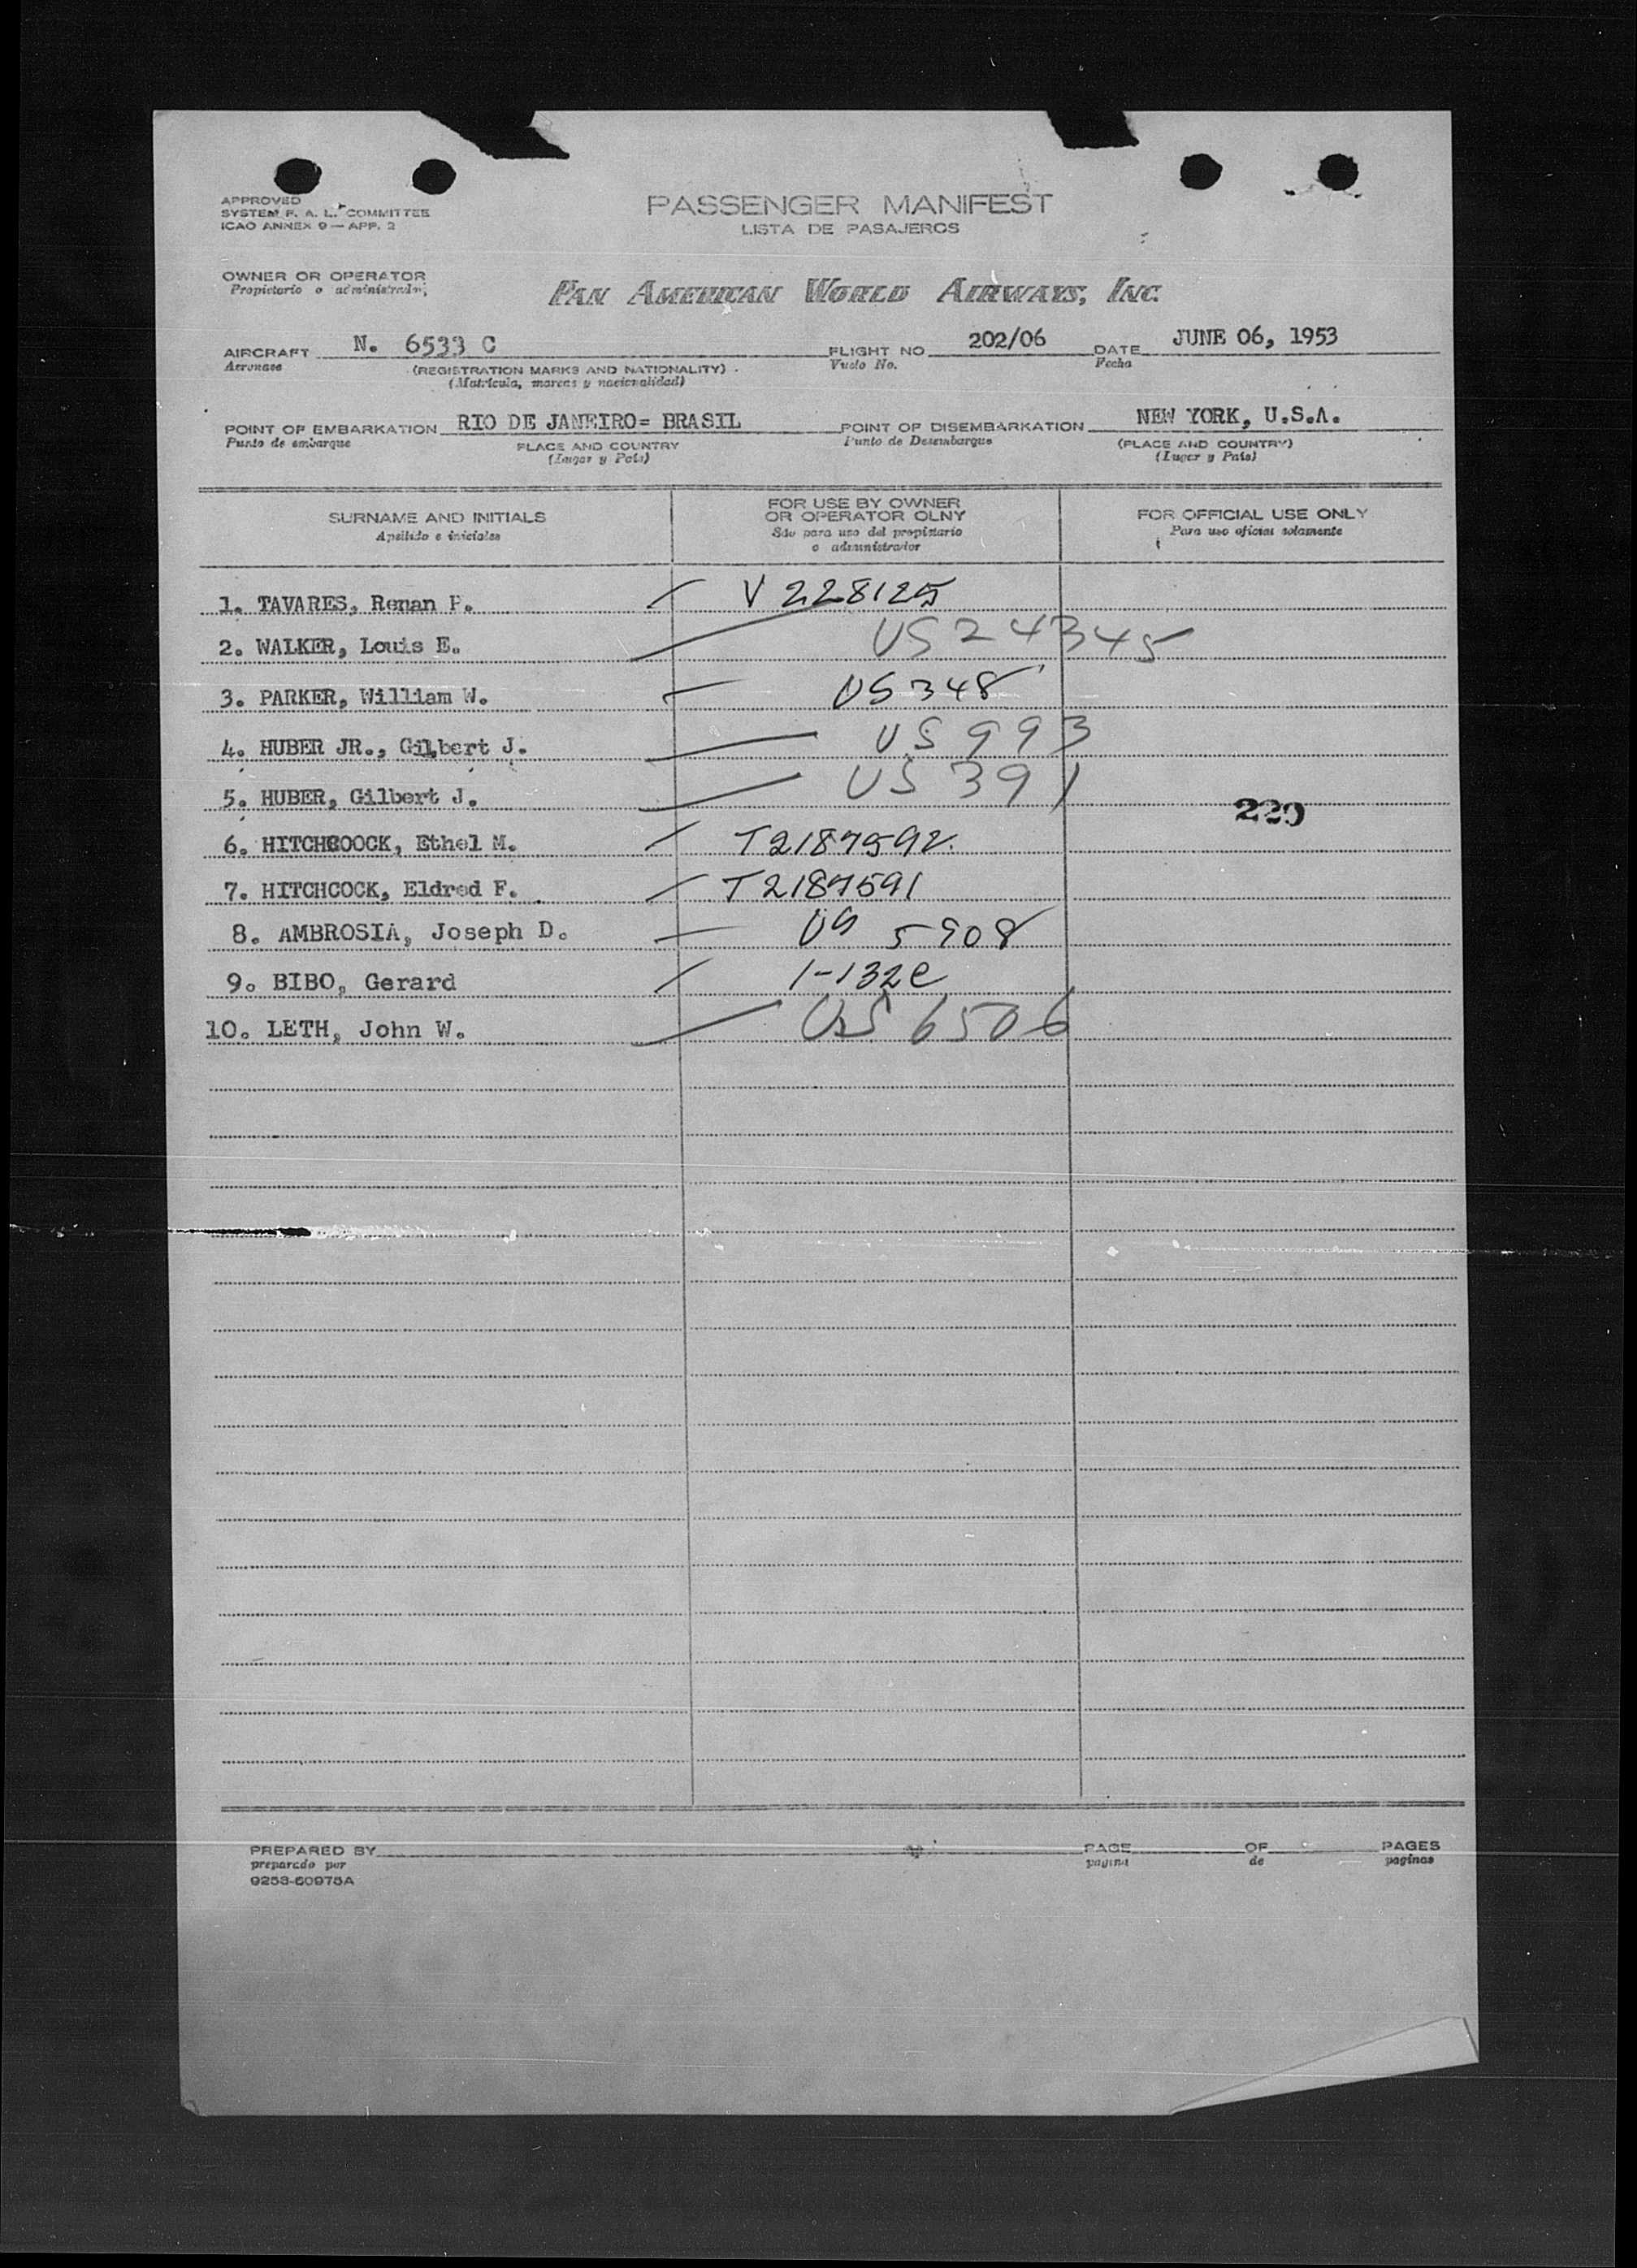 APPROVED
SYSTEM F. A. L. COMMITTEE
ICAO ANNEX 9 — APP. 2
PASSENGER MANIFEST
LISTA DE PASAJEROS
OWNER OR OPERATOR
Propietario o administrador,
PAN AMERICAN WORLD AIRWAYS, INC.
AIRCRAFT N. 6533 C FLIGHT NO 202/06 DATE JUNE 06, 1953
Aeronave (REGISTRATION MARKS AND NATIONALITY) Vuelo No. Fecha
(Matrícula, marcas y nacionalidad)
POINT OF EMBARKATION RIO DE JANEIRO= BRASIL POINT OF DISEMBARKATION NEW YORK, U.S.A.
Punto de embarque PLACE AND COUNTRY Punto de Desembarque (PLACE AND COUNTRY)
(Lugar y País) (Lugar y País)
SURNAME AND INITIALS FOR USE BY OWNER OR OPERATOR OLNY FOR OFFICIAL USE ONLY
Apellido e iniciales Sólo para uso del propietario o administrador Para uso oficial solamente
1. TAVARES, Renan P. V 228125
2. WALKER, Louis E. US 24345
3. PARKER, William W. US 348
4. HUBER JR., Gilbert J. US 993
5. HUBER, Gilbert J. US 391
229
6. HITCHCOOCK, Ethel M. T2187592
7. HITCHCOCK, Eldred F. T2187591
8. AMBROSIA, Joseph D. US 5908
9. BIBO, Gerard 1-132c
10. LETH, John W. US 6506
PREPARED BY PAGE OF PAGES
preparado por pagina de paginas
9253-60975A